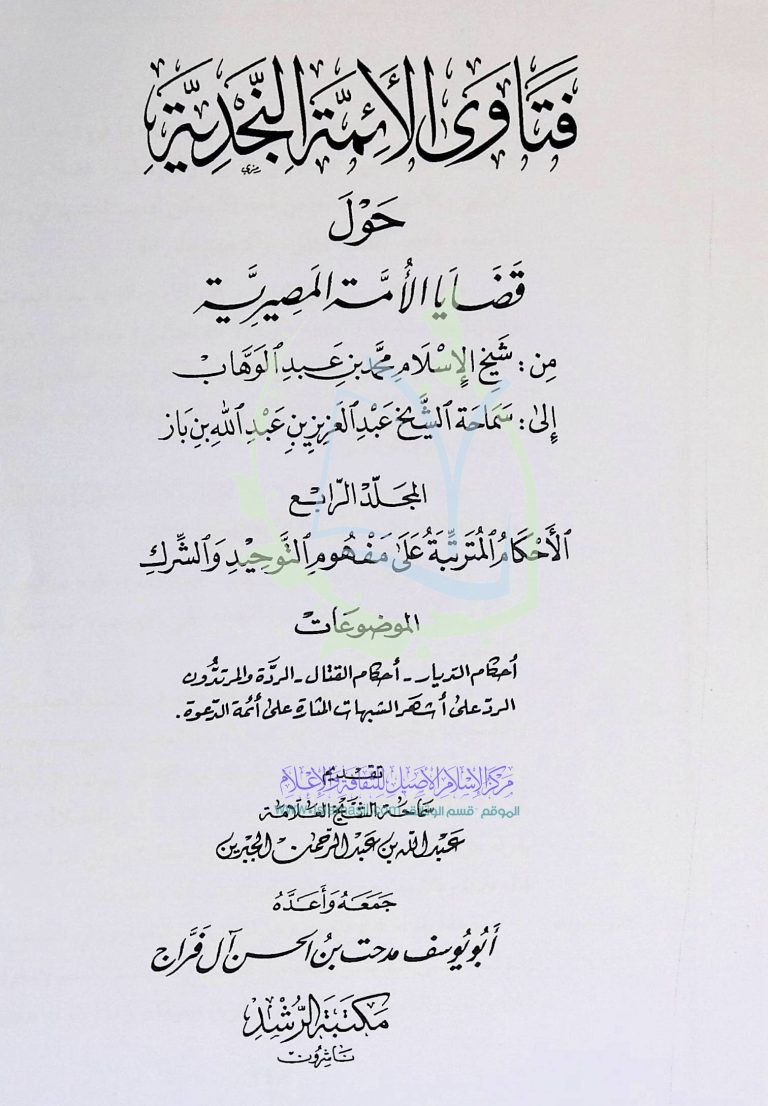 فَتَاوَى الأَئِمَّةِ النَّجْدِيَّةِ
حَوْلَ
قَضَايَا الأُمَّةِ المَصِيرِيَّةِ
مِن : شَيْخِ الإِسْلَامِ مُحَمَّد بن عَبدِ الوَهَّاب
إِلى : سَمَاحَة الشَّيخ عَبْدِ العَزِيزِ بنِ عَبْدِ اللهِ بنِ بَاز
المجَلّد الرَّابع
الأَحْكَامُ المُتَرَتِّبَةُ عَلَى مَفْهُومِ التَّوحِيدِ وَالشِّركِ
الموضوعَات
أحكام الديار - أحكام القتال - الردّة والمرتدُّون
الردّ على أشهر الشبهات المثارة على أئمة الدعوة .
تقديم
مركز الإسلام الأصيل للثقافة والإعلام
سَمَاحَة الشَّيْخ العَلَّامَة
الموقع - قسم
عَبْد الله بن عَبد الرّحمن الجبرين
جَمَعَهُ وَأَعَدَّهُ
أَبُو يُوسف مدحت بنُ الحسن آل فَرَّاج
مَكتَبَة الرُّشْدِ
نَاشِرُون